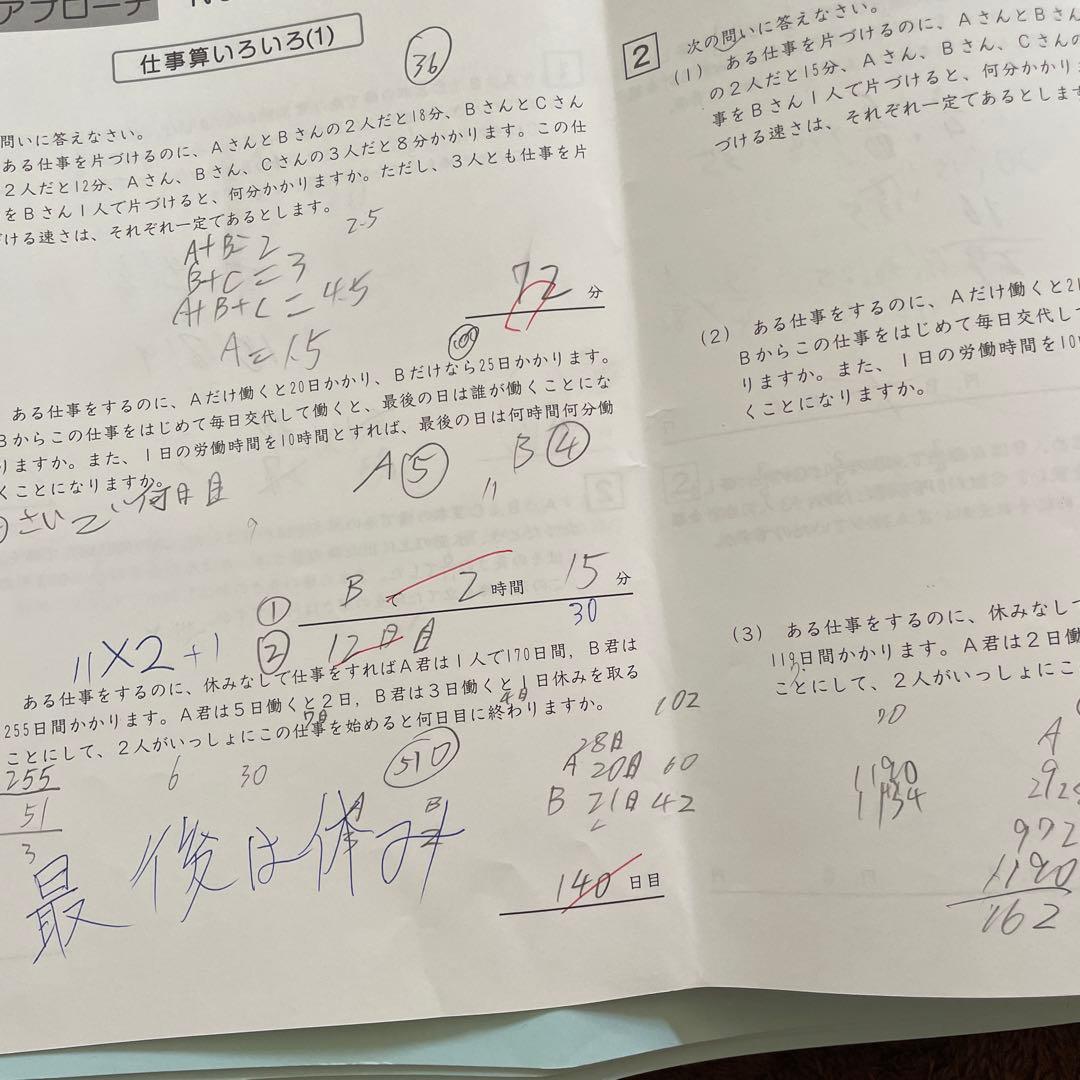 アプローチ
仕事算いろいろ(1)
36
問いに答えなさい。
ある仕事を片づけるのに、AさんとBさんの2人だと18分、BさんとCさん
2人だと12分、Aさん、Bさん、Cさんの3人だと8分かかります。この仕
をBさん1人で片づけると、何分かかりますか。ただし、3人とも仕事を片
ける速さは、それぞれ一定であるとします。
A+B=2
2.5
B+C=3
A+B+C=4.5
A=1.5
72分
100
ある仕事をするのに、Aだけ働くと20日かかり、Bだけなら25日かかります。
Bからこの仕事をはじめて毎日交代して働くと、最後の日は誰が働くことにな
りますか。また、1日の労働時間を10時間とすれば、最後の日は何時間何分働
くことになりますか。
A⑤ B④
さいごい何日目
9
11
① Bで 2時間 15分
30
11×2+1
② 12日目
ある仕事をするのに、休みなしで仕事をすればA君は1人で170日間、B君は
255日間かかります。A君は5日働くと2日、B君は3日働くと1日休みを取る
7日
4日
ことにして、2人がいっしょにこの仕事を始めると何日目に終わりますか。
102
255
51
3
6
30
510
28日
A 20日 60
B 21日 42
A
B
2
最後は休み
140日目
2
次の問いに答えなさい。
(1) ある仕事を片づけるのに、AさんとBさん
の2人だと15分、Aさん、Bさん、Cさんの
事をBさん1人で片づけると、何分かかりま
づける速さは、それぞれ一定であるとします
(2) ある仕事をするのに、Aだけ働くと21
Bからこの仕事をはじめて毎日交代して
りますか。また、1日の労働時間を10時
くことになりますか。
(3) ある仕事をするのに、休みなしで
119日間かかります。A君は2日働
ことにして、2人がいっしょにこ
70
A
1190
1134
972
1190
162